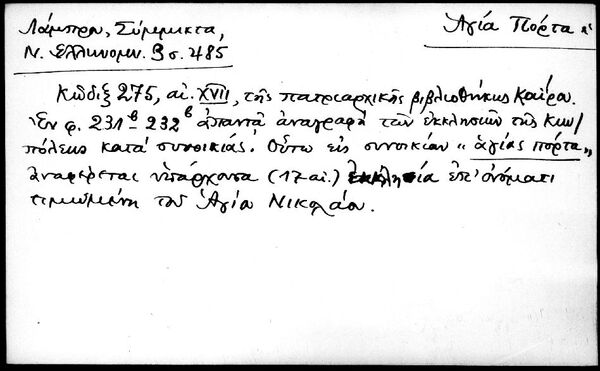 Λάμπρου, Σύμμικτα,
Ἁγία Πόρτα
Ν. Ἑλληνομν. 3 σ. 485
Κῶδιξ 275, αἰ. XVII, τῆς πατριαρχικῆς βιβλιοθήκης Καΐρου.
Ἐν φ. 231β – 232β ἀπαντᾶ ἀναγραφὴ τῶν ἐκκλησιῶν τῆς Κων/
πόλεως κατὰ συνοικίας. Οὕτω εἰς συνοικίαν "ἁγίας πόρτας"
ἀναφέρεται ὑπάρχουσα (17 αἰ.) ἐκκλησία ἐπ' ὀνόματι
τιμωμένη τοῦ Ἁγίου Νικολάου.